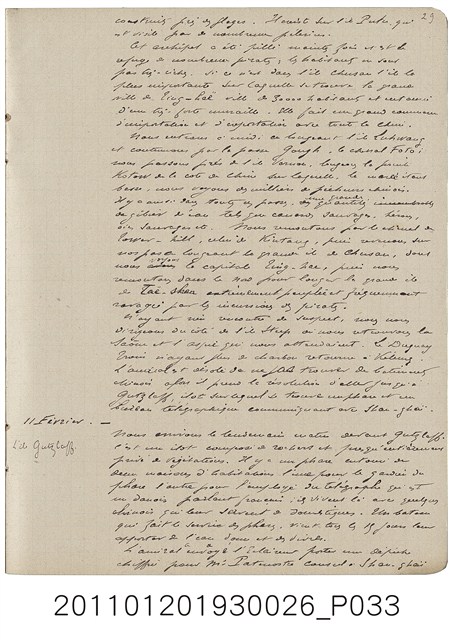 29
construits près des plages. Il existe sur l'île Putu, qui
est visité par de nombreux pèlerins.
Cet archipel a été pillé maintes fois et est le
refuge de nombreux pirates; les habitants ne sont
pas très riches. Si ce n'est dans l'île Chusan l'île la
plus importante sur laquelle se trouve la grande
ville de Ting-haë ville de 30000 habitants et entourée
d'une très forte muraille. Elle fait un grand commerce
d'importation et d'exportation avec toute la Chine.
Nous entrons à midi, en longeant l'île
et continuons par la passe Gough, le chenal Foto;
nous passons près de l'île Vernon, longeons la
de la côte de Chine sur laquelle, la marée étant
basse, nous voyons des milliers de pêcheurs chinois.
Il y a aussi dans toutes ces passes, une grande quantité
de gibier d'eau tel que canards sauvages, hérons,
oies sauvages etc. Nous remontons par le chenal de
Tower-hill, celui de Kintang, puis revenons sur
nos pas en longeant la grande île de Chusan, dont
nous voyons la capitale Ting-hae, puis nous
remontons dans le Nord pour longer la grande île
de Tae-shan extrêmement peuplée et fréquemment
ravagée par les incursions des pirates.
N'ayant rien rencontré de suspect, nous nous
dirigeons du côté de l'île Steep où nous retrouvons la
Saône et l'Aspic qui nous attendaient. Le Duguay
Trouin n'ayant plus de charbon retourne à Kelung.
L'amiral est désolé de ne pas trouver de bâtiments
chinois alors il prend la résolution d'aller jusqu'à
Gutzlaff, îlot sur lequel se trouve un phare et un
bureau télégraphique communiquant avec Shang-haï.
11 Février. —
Île Gutzlaff.
Nous arrivons le lendemain matin devant Gutzlaff.
c'est un îlot composé de rochers et presque entièrement
privé de végétation. Il y a un phare entouré de
deux maisons d'habitations l'une pour le gardien du
phare l'autre pour l'employé du télégraphe qui est
un danois parlant français. Ils vivent là avec quelques
chinois qui leur servent de domestiques. Un bateau
qui fait le service des phares, vient tous les 15 jours leur
apporter de l'eau douce et des vivres.
L'amiral envoya l'Eclaireur porter une dépêche
chiffrée pour Mr. Patenotre consul à Shang-haï
201101201930026_P033